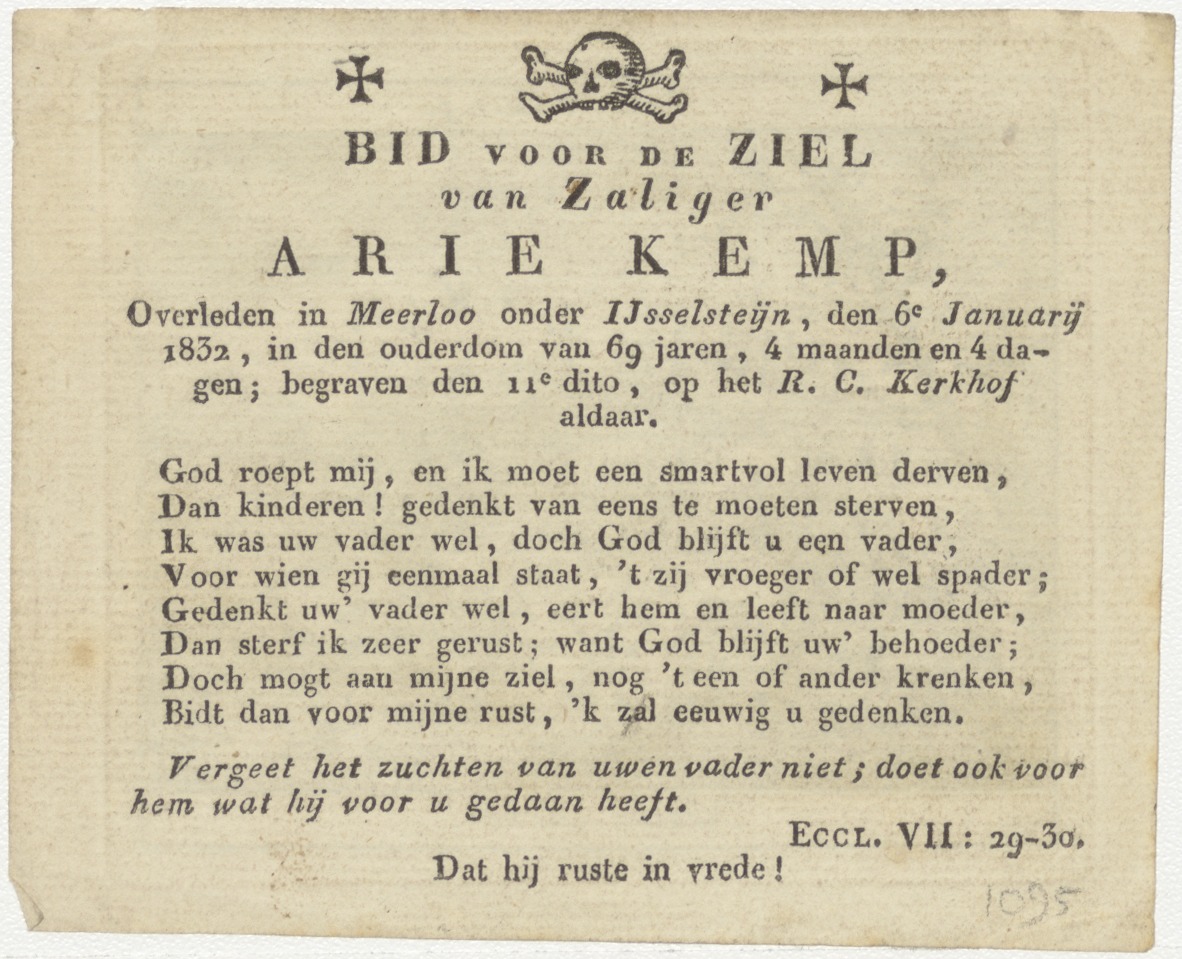 BID VOOR DE ZIEL
van Zaliger
ARIE KEMP,
Overleden in Meerloo onder IJsselsteijn, den 6e Januarij
1832, in den ouderdom van 69 jaren, 4 maanden en 4 da-
gen; begraven den 11e dito, op het R. C. Kerkhof
aldaar.
God roept mij, en ik moet een smartvol leven derven,
Dan kinderen! gedenkt van eens te moeten sterven,
Ik was uw vader wel, doch God blijft u een vader,
Voor wien gij eenmaal staat, 't zij vroeger of wel spader;
Gedenkt uw' vader wel, eert hem en leeft naar moeder,
Dan sterf ik zeer gerust; want God blijft uw' behoeder;
Doch mogt aan mijne ziel, nog 't een of ander krenken,
Bidt dan voor mijne rust, 'k zal eeuwig u gedenken.
Vergeet het zuchten van uwen vader niet; doet ook voor
hem wat hij voor u gedaan heeft.
ECCL. VII: 29-30.
Dat hij ruste in vrede!
1095